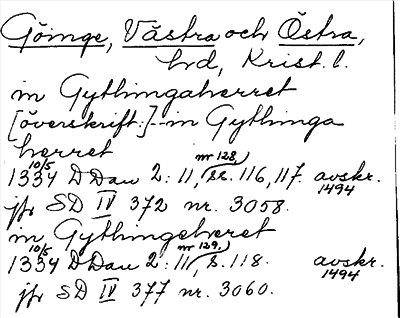 Göinge, Västra och Östra,
hrd, Krist. l.
in Gythingahærret
[överskrift:]--in Gythinga
hærret
10/5 1334 DDan 2:11, nr 128, s. 116, 117. avskr. 1494
jfr SD IV 372 nr. 3058.
in Gythingehæret
10/5 1334 DDan 2:11, nr 129, s. 118. avskr. 1494
jfr SD IV 377 nr. 3060.